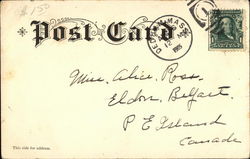 $1.50
Post Card
MASS.
12
1905
1
Miss. Alice Ross.
Eldon, Belfast.
P E Island
Canada
This side for address.